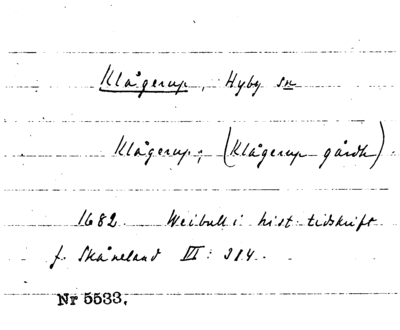 Klågerup, Hyby sn
Klågerup; (Klågerup gårdh)
1682 Weibull i hist. tidskrift
f. Skåneland VI: 314.
Nr 5533.